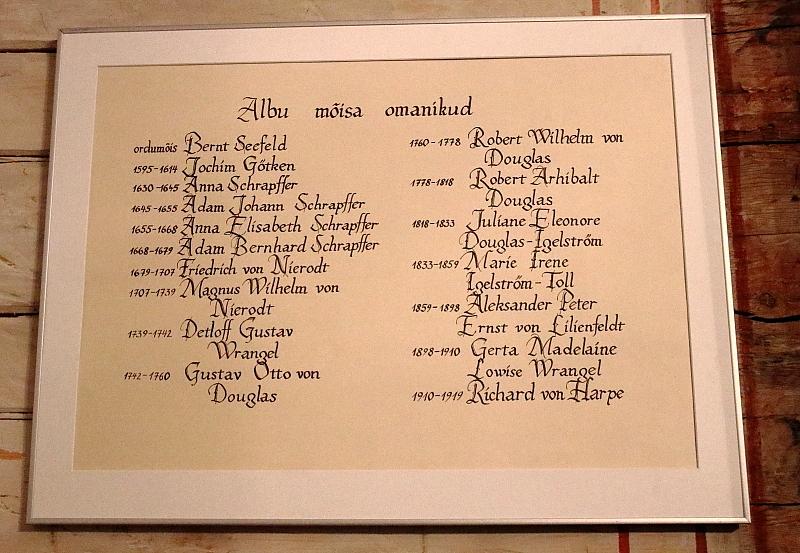 Albu mõisa omanikud
ordumõis Bernt Seefeld
1595-1614 Jochim Gőtken
1630-1645 Anna Schrapffer
1645-1655 Adam Johann Schrapffer
1655-1668 Anna Elisabeth Schrapffer
1668-1679 Adam Bernhard Schrapffer
1679-1707 Friedrich von Nierodt
1707-1739 Magnus Wilhelm von
Nierodt
1739-1742 Detloff Gustav
Wrangel
1742-1760 Gustav Otto von
Douglas
1760-1778 Robert Wilhelm von
Douglas
1778-1818 Robert Arhibalt
Douglas
1818-1833 Juliane Eleonore
Douglas-Igelstrőm
1833-1859 Marie Irene
Igelstrőm-Toll
1859-1898 Aleksander Peter
Ernst von Lilienfeldt
1898-1910 Gerta Madelaine
Lowise Wrangel
1910-1919 Richard von Harpe